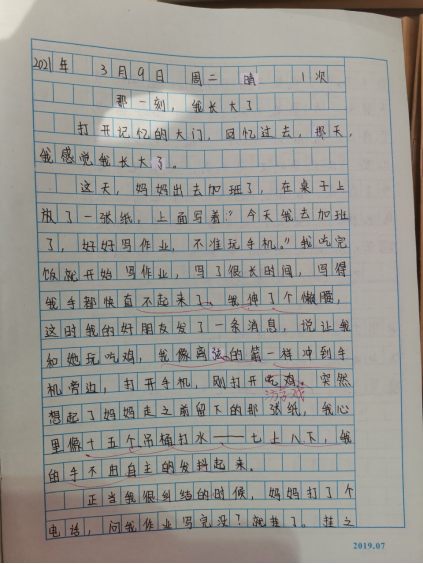 2021年 3月9日 周二 晴 1次
那一刻，我长大了
打开记忆的大门，回忆过去，那天，
我感觉我长大了。
这天，妈妈出去加班了，在桌子上
放了一张纸，上面写着“今天我去加班
了，好好写作业，不准玩手机。”我吃完
饭就开始写作业，写了很长时间，写得
我手都快直不起来了。我伸了个懒腰，
这时我的好朋友发了一条消息，说让我
和她玩吃鸡，我像离弦的箭一样冲到手
机旁边，打开手机，刚打开吃鸡。突然
游戏
想起了妈妈走之前留下的那张纸，我心
里像十五个吊桶打水——七上八下，我
的手不由自主的发抖起来。
正当我很纠结的时候，妈妈打了个
电话，问我作业写完没？就挂了。挂之
2019.07